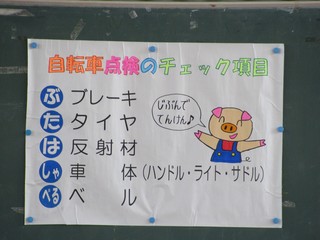 自転車点検のチェック項目
ぶ ブレーキ
た タイヤ
は 反射材
しゃ 車体(ハンドル・ライト・サドル)
べる ベル
じぶんで
てんけん♪